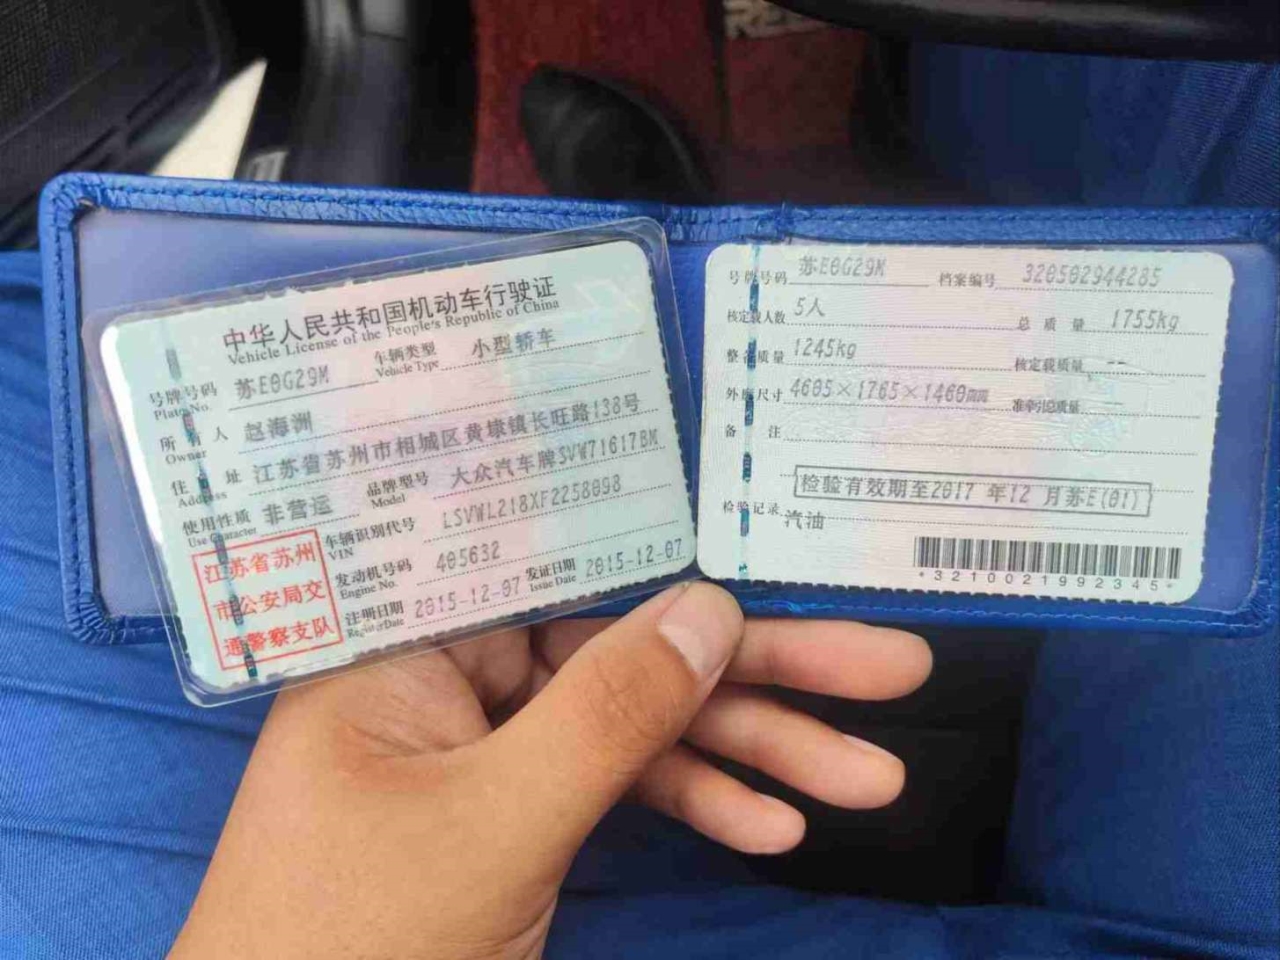 中华人民共和国机动车行驶证
Vehicle License of the People's Republic of China
号牌号码 苏E0G29M 车辆类型 小型轿车
Plate No. Vehicle Type
所有人 赵海洲
Owner
住址 江苏省苏州市相城区黄埭镇长旺路138号
Address
使用性质 非营运 品牌型号 大众汽车牌SVW71617BM
Use Character Model
车辆识别代号 LSVWL218XF2258098
VIN
发动机号码 405632
Engine No.
注册日期 2015-12-07 发证日期 2015-12-07
Register Date Issue Date
江苏省苏州
市公安局交
通警察支队
号牌号码 苏E0G29M 档案编号 320502944285
核定载人数 5人 总质量 1755kg
整备质量 1245kg 核定载质量 --
外廓尺寸 4605×1765×1460mm 准牵引总质量
备注
检验有效期至2017年12月苏E(01)
检验记录
汽油
*3210021992345*